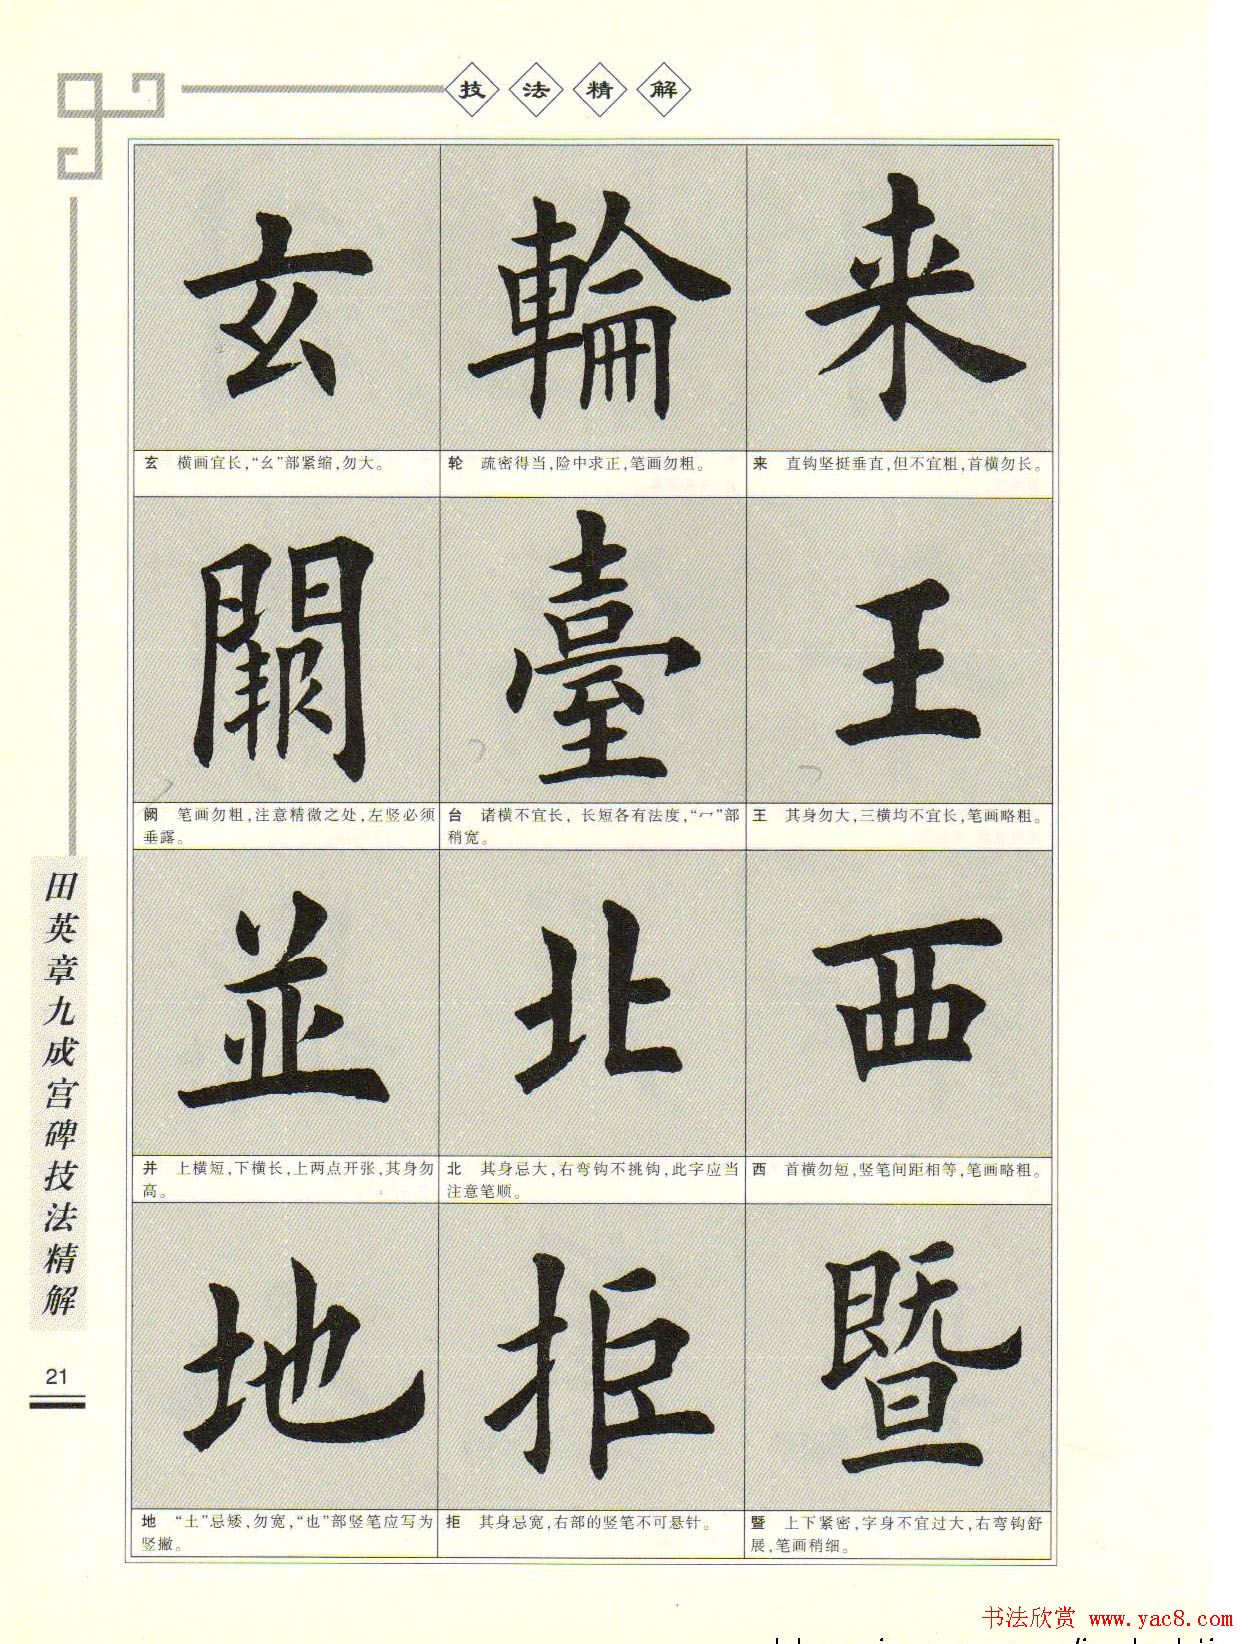 技法精解
玄 輪 来
玄 横画宜长,“幺”部紧缩,勿大。
轮 疏密得当,险中求正,笔画勿粗。
来 直钩坚挺垂直,但不宜粗,首横勿长。
闕 臺 王
阙 笔画勿粗,注意精微之处,左竖必须
垂露。
台 诸横不宜长,长短各有法度,“冖”部
稍宽。
王 其身勿大,三横均不宜长,笔画略粗。
並 北 西
并 上横短,下横长,上两点开张,其身勿
高。
北 其身忌大,右弯钩不挑钩,此字应当
注意笔顺。
西 首横勿短,竖笔间距相等,笔画略粗。
地 拒 暨
地 “土”忌矮,勿宽,“也”部竖笔应写为
竖撇。
拒 其身忌宽,右部的竖笔不可悬针。
暨 上下紧密,字身不宜过大,右弯钩舒
展,笔画稍细。
田英章九成宫碑技法精解
21
书法欣赏 www.yac8.com